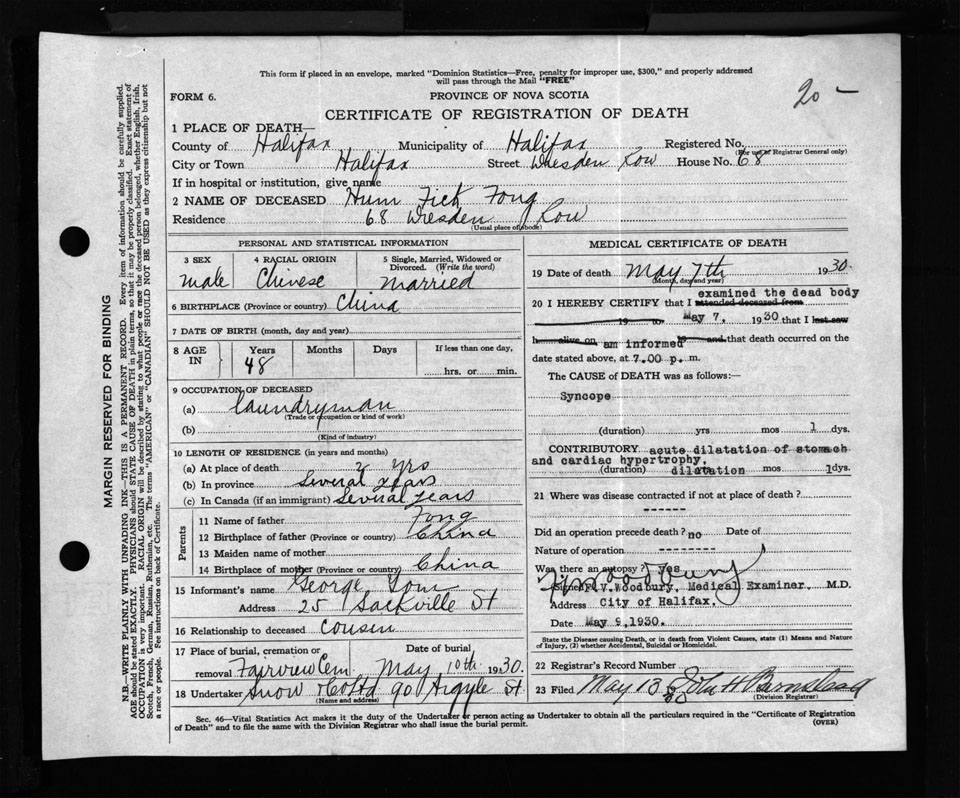 This form if placed in an envelope, marked "Dominion Statistics—Free, penalty for improper use, $300," and properly addressed
will pass through the Mail "FREE"
20 —
FORM 6.
PROVINCE OF NOVA SCOTIA
CERTIFICATE OF REGISTRATION OF DEATH
1 PLACE OF DEATH—
County of Halifax Municipality of Halifax Registered No.
(For use of Registrar General only)
City or Town Halifax Street Dresden Row House No. 68
If in hospital or institution, give name
2 NAME OF DECEASED Hum Fick Fong
Residence 68 Dresden Row
(Usual place of abode)
PERSONAL AND STATISTICAL INFORMATION
3 SEX 4 RACIAL ORIGIN 5 Single, Married, Widowed or
Divorced. (Write the word)
male Chinese married
6 BIRTHPLACE (Province or country) China
7 DATE OF BIRTH (month, day and year)
8 AGE IN Years Months Days If less than one day,
48 hrs. or min.
9 OCCUPATION OF DECEASED
(a) Laundryman
(Trade or occupation or kind of work)
(b)
(Kind of industry)
10 LENGTH OF RESIDENCE (in years and months)
(a) At place of death 2 yrs
(b) In province Several years
(c) In Canada (if an immigrant) Several years
Parents
11 Name of father Fong
12 Birthplace of father (Province or country) China
13 Maiden name of mother
14 Birthplace of mother (Province or country) China
15 Informant's name George
Address 25 Sackville St
16 Relationship to deceased cousin
17 Place of burial, cremation or Date of burial
removal Fairview Cem May 10th 1930.
18 Undertaker Snow & Co Ltd 90 Argyle St
(Name and address)
MEDICAL CERTIFICATE OF DEATH
19 Date of death May 7th 1930.
(Month, day and year)
examined the dead body
20 I HEREBY CERTIFY that I attended deceased from
19 to May 7, 1930 that I last saw
h alive on am informed 19 and that death occurred on the
date stated above, at 7.00 p. m.
The CAUSE of DEATH was as follows:—
Syncope
(duration) yrs mos 1 dys.
CONTRIBUTORY acute dilatation of stomach
and cardiac hypertrophy,
(duration) dilatation mos 1 dys.
21 Where was disease contracted if not at place of death?
-------
Did an operation precede death? no Date of
Nature of operation --------
Was there an autopsy? yes
F V Woodbury
Signed F.V. Woodbury, Medical Examiner, M.D.
Address City of Halifax,
Date May 9, 1930.
State the Disease causing Death, or in death from Violent Causes, state (1) Means and Nature
of Injury, (2) whether Accidental, Suicidal or Homicidal.
22 Registrar's Record Number
23 Filed May 13 30 John H Barnstead
(Division Registrar)
Sec. 46—Vital Statistics Act makes it the duty of the Undertaker or person acting as Undertaker to obtain all the particulars required in the "Certificate of Registration
of Death" and to file the same with the Division Registrar who shall issue the burial permit.
(OVER)
MARGIN RESERVED FOR BINDING
N.B.—WRITE PLAINLY WITH UNFADING INK—THIS IS A PERMANENT RECORD. Every item of information should be carefully supplied.
AGE should be stated EXACTLY. PHYSICIANS should STATE CAUSE OF DEATH in plain terms, so that it may be properly classified. Exact statement of
OCCUPATION is very important. RACIAL ORIGIN will be described by stating to what people or race the deceased person belonged, whether English, Irish,
Scotch, French, German, Russian, Ruthenian, etc. The terms "AMERICAN" or "CANADIAN" SHOULD NOT BE USED as they express citizenship but not
a race or people. See instructions on back of Certificate.